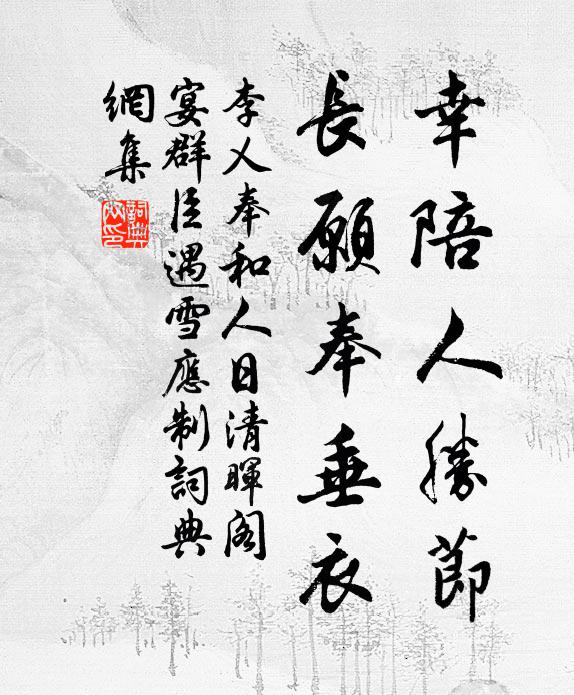 幸陪人勝節
長願奉垂衣
李乂奉和人日清暉閣
宴群臣遇雪應制詞典
網集
詞典網印